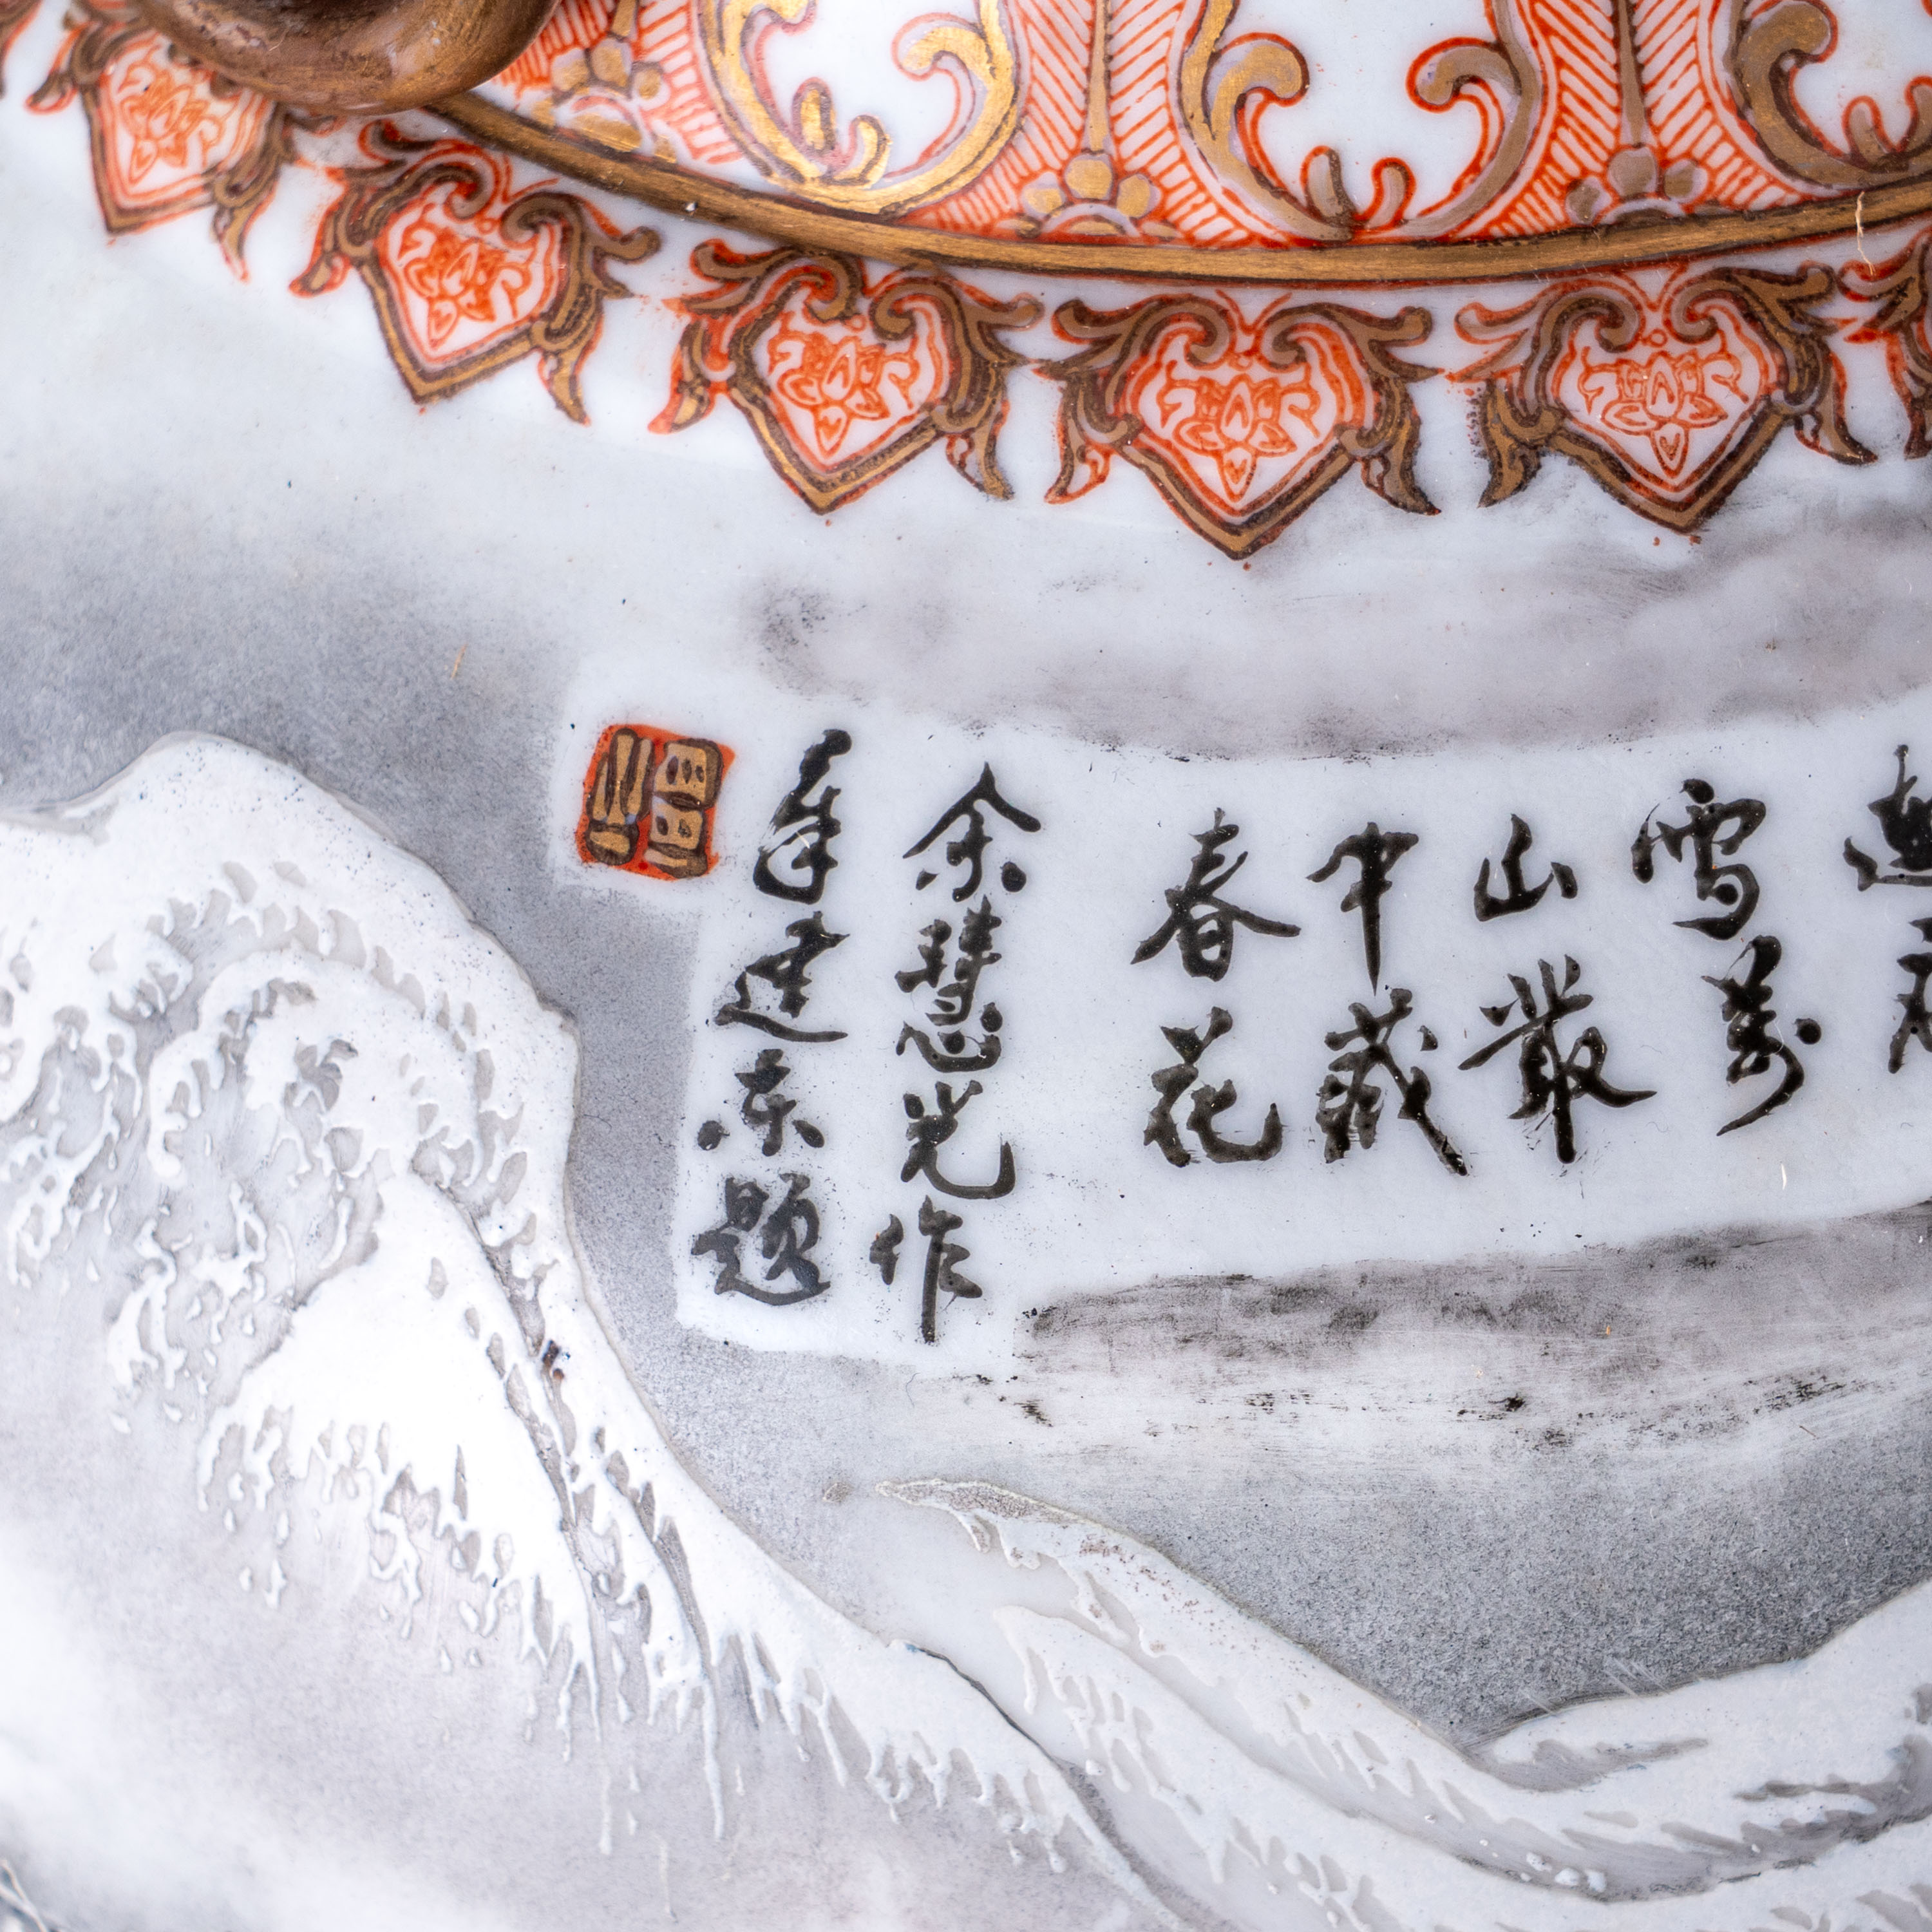 雪萬
山叢
中藏
春花
余慧光作
年建东题